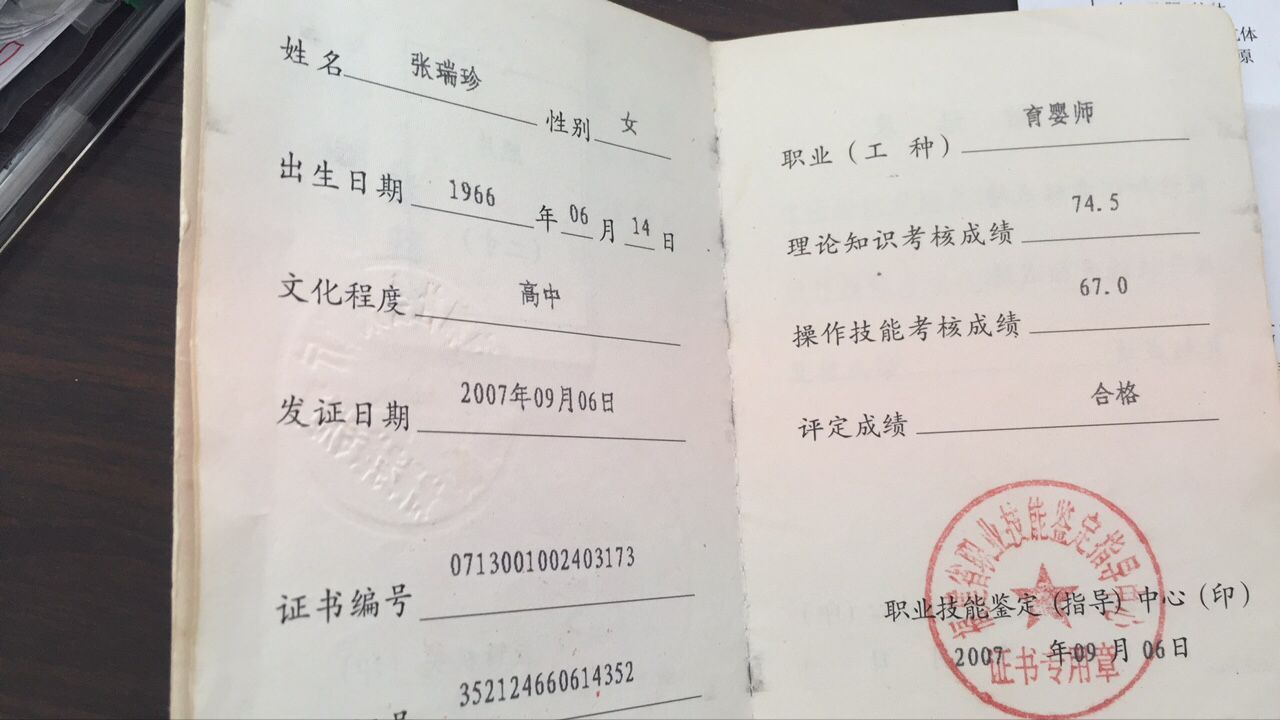 姓名 张瑞珍 性别 女
出生日期 1966 年 06 月 14 日
文化程度 高中
发证日期 2007年09月06日
证书编号 0713001002403173
352124660614352
号
职业（工 种） 育婴师
理论知识考核成绩 74.5
操作技能考核成绩 67.0
评定成绩 合格
省职业技能鉴定指导中心
证书专用章
职业技能鉴定（指导）中心（印）
2007 年 09 月 06 日